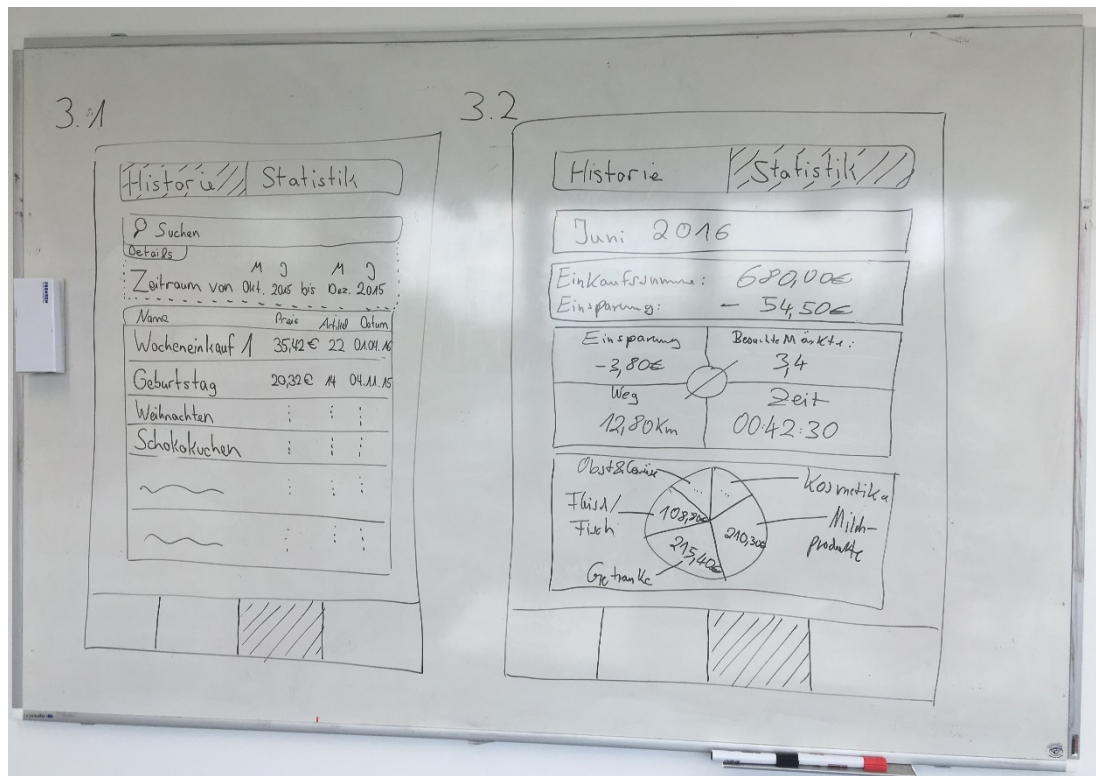 3.1
Historie Statistik
Suchen
Details
M J M J
Zeitraum von Okt. 2015 bis Dez. 2015
Name Preis Artikel Datum
Wocheneinkauf 1 35,42€ 22 01.04.16
Geburtstag 20,32€ 14 04.11.15
Weihnachten
Schokokuchen
3.2
Historie Statistik
Juni 2016
Einkaufssumme: 680,00€
Einsparung: - 54,50€
Einsparung
-3,80€
Besuchte Märkte:
3,4
Weg
12,80Km
Zeit
00:42:30
Obst&Gemüse
Kosmetika
Fleisch/
Fisch
108,80€
Milch-
produkte
210,30€
215,40€
Getränke